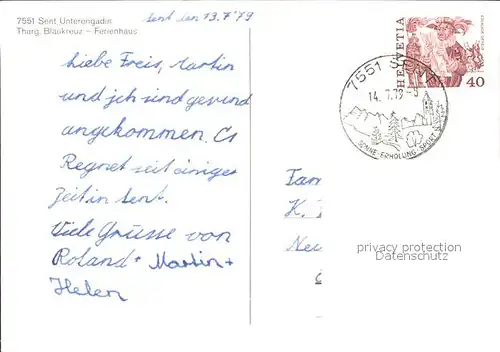 7551 Sent, Unterengadin
Thurg. Blaukreuz - Ferienhaus
Sent den 13.7'79
Liebe Freis, Martin
und ich sind gesund
angekommen. Es
Regnet seit einiger
Zeit in Sent.
Viele Grüsse von
Roland + Martin +
Helen
HELVETIA
40
7551 SENT
14.7.79
SONNE-ERHOLUNG-SPORT
Fam
K.
Neu
privacy protection